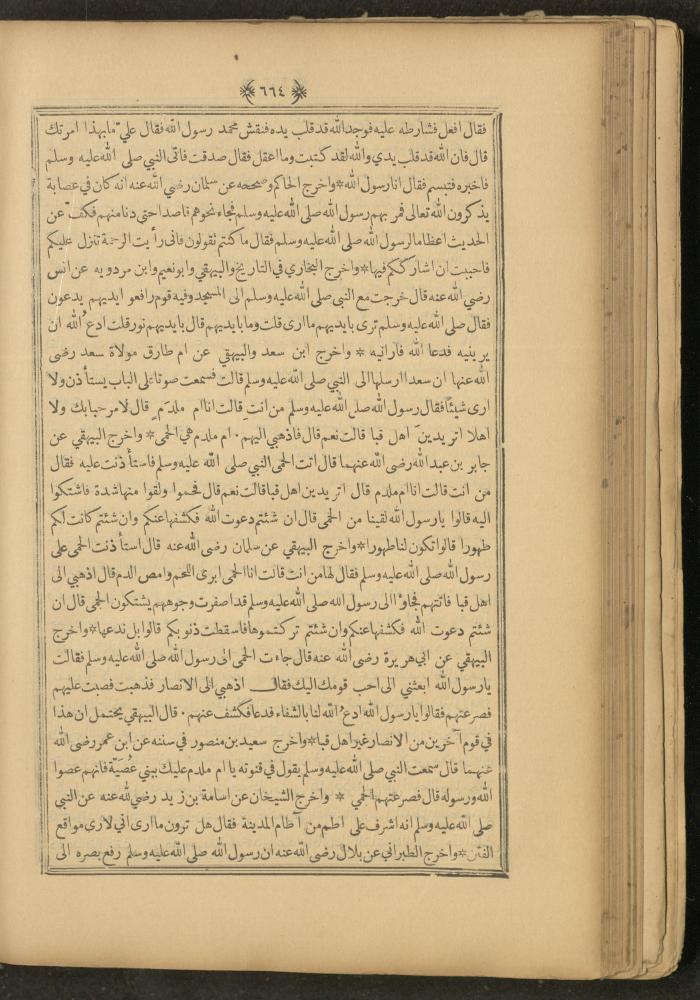 ﴿ ٦٦٤ ﴾
فقال افعل فشارطه عليه فوجد الله قد قلب يده فنقش محمد رسول الله فقال علي ّ ما بهذا امرتك
قال فان الله قد قلب يدي والله لقد كتبت وما اعقل فقال صدقت فاتى النبي صلى الله عليه وسلم
فاخبره فتبسم فقال انا رسول الله * واخرج الحاكم وصححه عن سلمان رضي الله عنه انه كان في عصابة
يذكرون الله تعالى فمر بهم رسول الله صلى الله عليه وسلم فجاء نحوهم قاصدا حتى دنا منهم فكفّ عن
الحديث اعظاما لرسول الله صلى الله عليه وسلم فقال ما كنتم تقولون فاني رأيت الرحمة تنزل عليكم
فاحببت ان اشارككم فيها * واخرج البخاري في التاريخ والبيهقي وابو نعيم وابن مردويه عن انس
رضي الله عنه قال خرجت مع النبي صلى الله عليه وسلم الى المسجد وفيه قوم رافعو ايديهم يدعون
فقال صلى الله عليه وسلم ترى بايديهم ما ارى قلت وما بايديهم قال بايديهم نور قلت ادع ُ الله ان
يرينيه فدعا الله فارانيه * واخرج ابن سعد والبيهقي عن ام طارق مولاة سعد رضى
الله عنها ان سعدا ارسلها الى النبي صلى الله عليه وسلم قالت فسمعت صوتا على الباب يستأذن ولا
ارى شيئًا فقال رسول الله صلى الله عليه وسلم من انتِ قالت انا ام ملدَم ٍ قال لا مرحبا بك ولا
اهلا اتريدين َ اهل قبا قالت نعم قال فاذهبي اليهم . ام ملدم هي الحمى * واخرج البيهقي عن
جابر بن عبد الله رضى الله عنهما قال اتت الحمى النبي صلى الله عليه وسلم فاستأذنت عليه فقال
من انت قالت انا ام ملدم قال اتريدين اهل قبا قالت نعم قال فحموا ولقوا منها شدة فاشتكوا
اليه قالوا يا رسول الله لقينا من الحمى قال ان شئتم دعوت الله فكشفها عنكم وان شئتم كانت لكم
طهورا قالوا تكون لنا طهورا * واخرج البيهقي عن سلمان رضى الله عنه قال استأذنت الحمى على
رسول الله صلى الله عليه وسلم فقال لها من انت قالت انا الحمى ابري اللحم وامص الدم قال اذهبي الى
اهل قبا فاتتهم فجاؤا الى رسول الله صلى الله عليه وسلم قد اصفرت وجوههم يشتكون الحمى قال ان
شئتم دعوت الله فكشفها عنكم وان شئتم تركتموها فاسقطت ذنوبكم قالوا بل ندعها * واخرج
البيهقي عن ابي هريرة رضى الله عنه قال جاءت الحمى الى رسول الله صلى الله عليه وسلم فقالت
يا رسول الله ابعثني الى احب قومك اليك فقال اذهبي الى الانصار فذهبت فصبت عليهم
فصرعتهم فقالوا يا رسول الله ادع ُ الله لنا بالشفاء فدعا فكشف عنهم . قال البيهقي يحتمل ان هذا
في قوم آخرين من الانصار غير اهل قبا * واخرج سعيد بن منصور في سننه عن ابن عمر رضى الله
عنهما قال سمعت النبي صلى الله عليه وسلم يقول في قنوته يا ام ملدم عليك ببني عُصَيَّة فانهم عصوا
الله ورسوله قال فصرعتهم الحمى * واخرج الشيخان عن اسامة بن زيد رضي الله عنه عن النبي
صلى الله عليه وسلم انه اشرف على اطم من آطام المدينة فقال هل ترون ما ارى اني لارى مواقع
الفتن * واخرج الطبراني عن بلال رضى الله عنه ان رسول الله صلى الله عليه وسلم رفع بصره الى